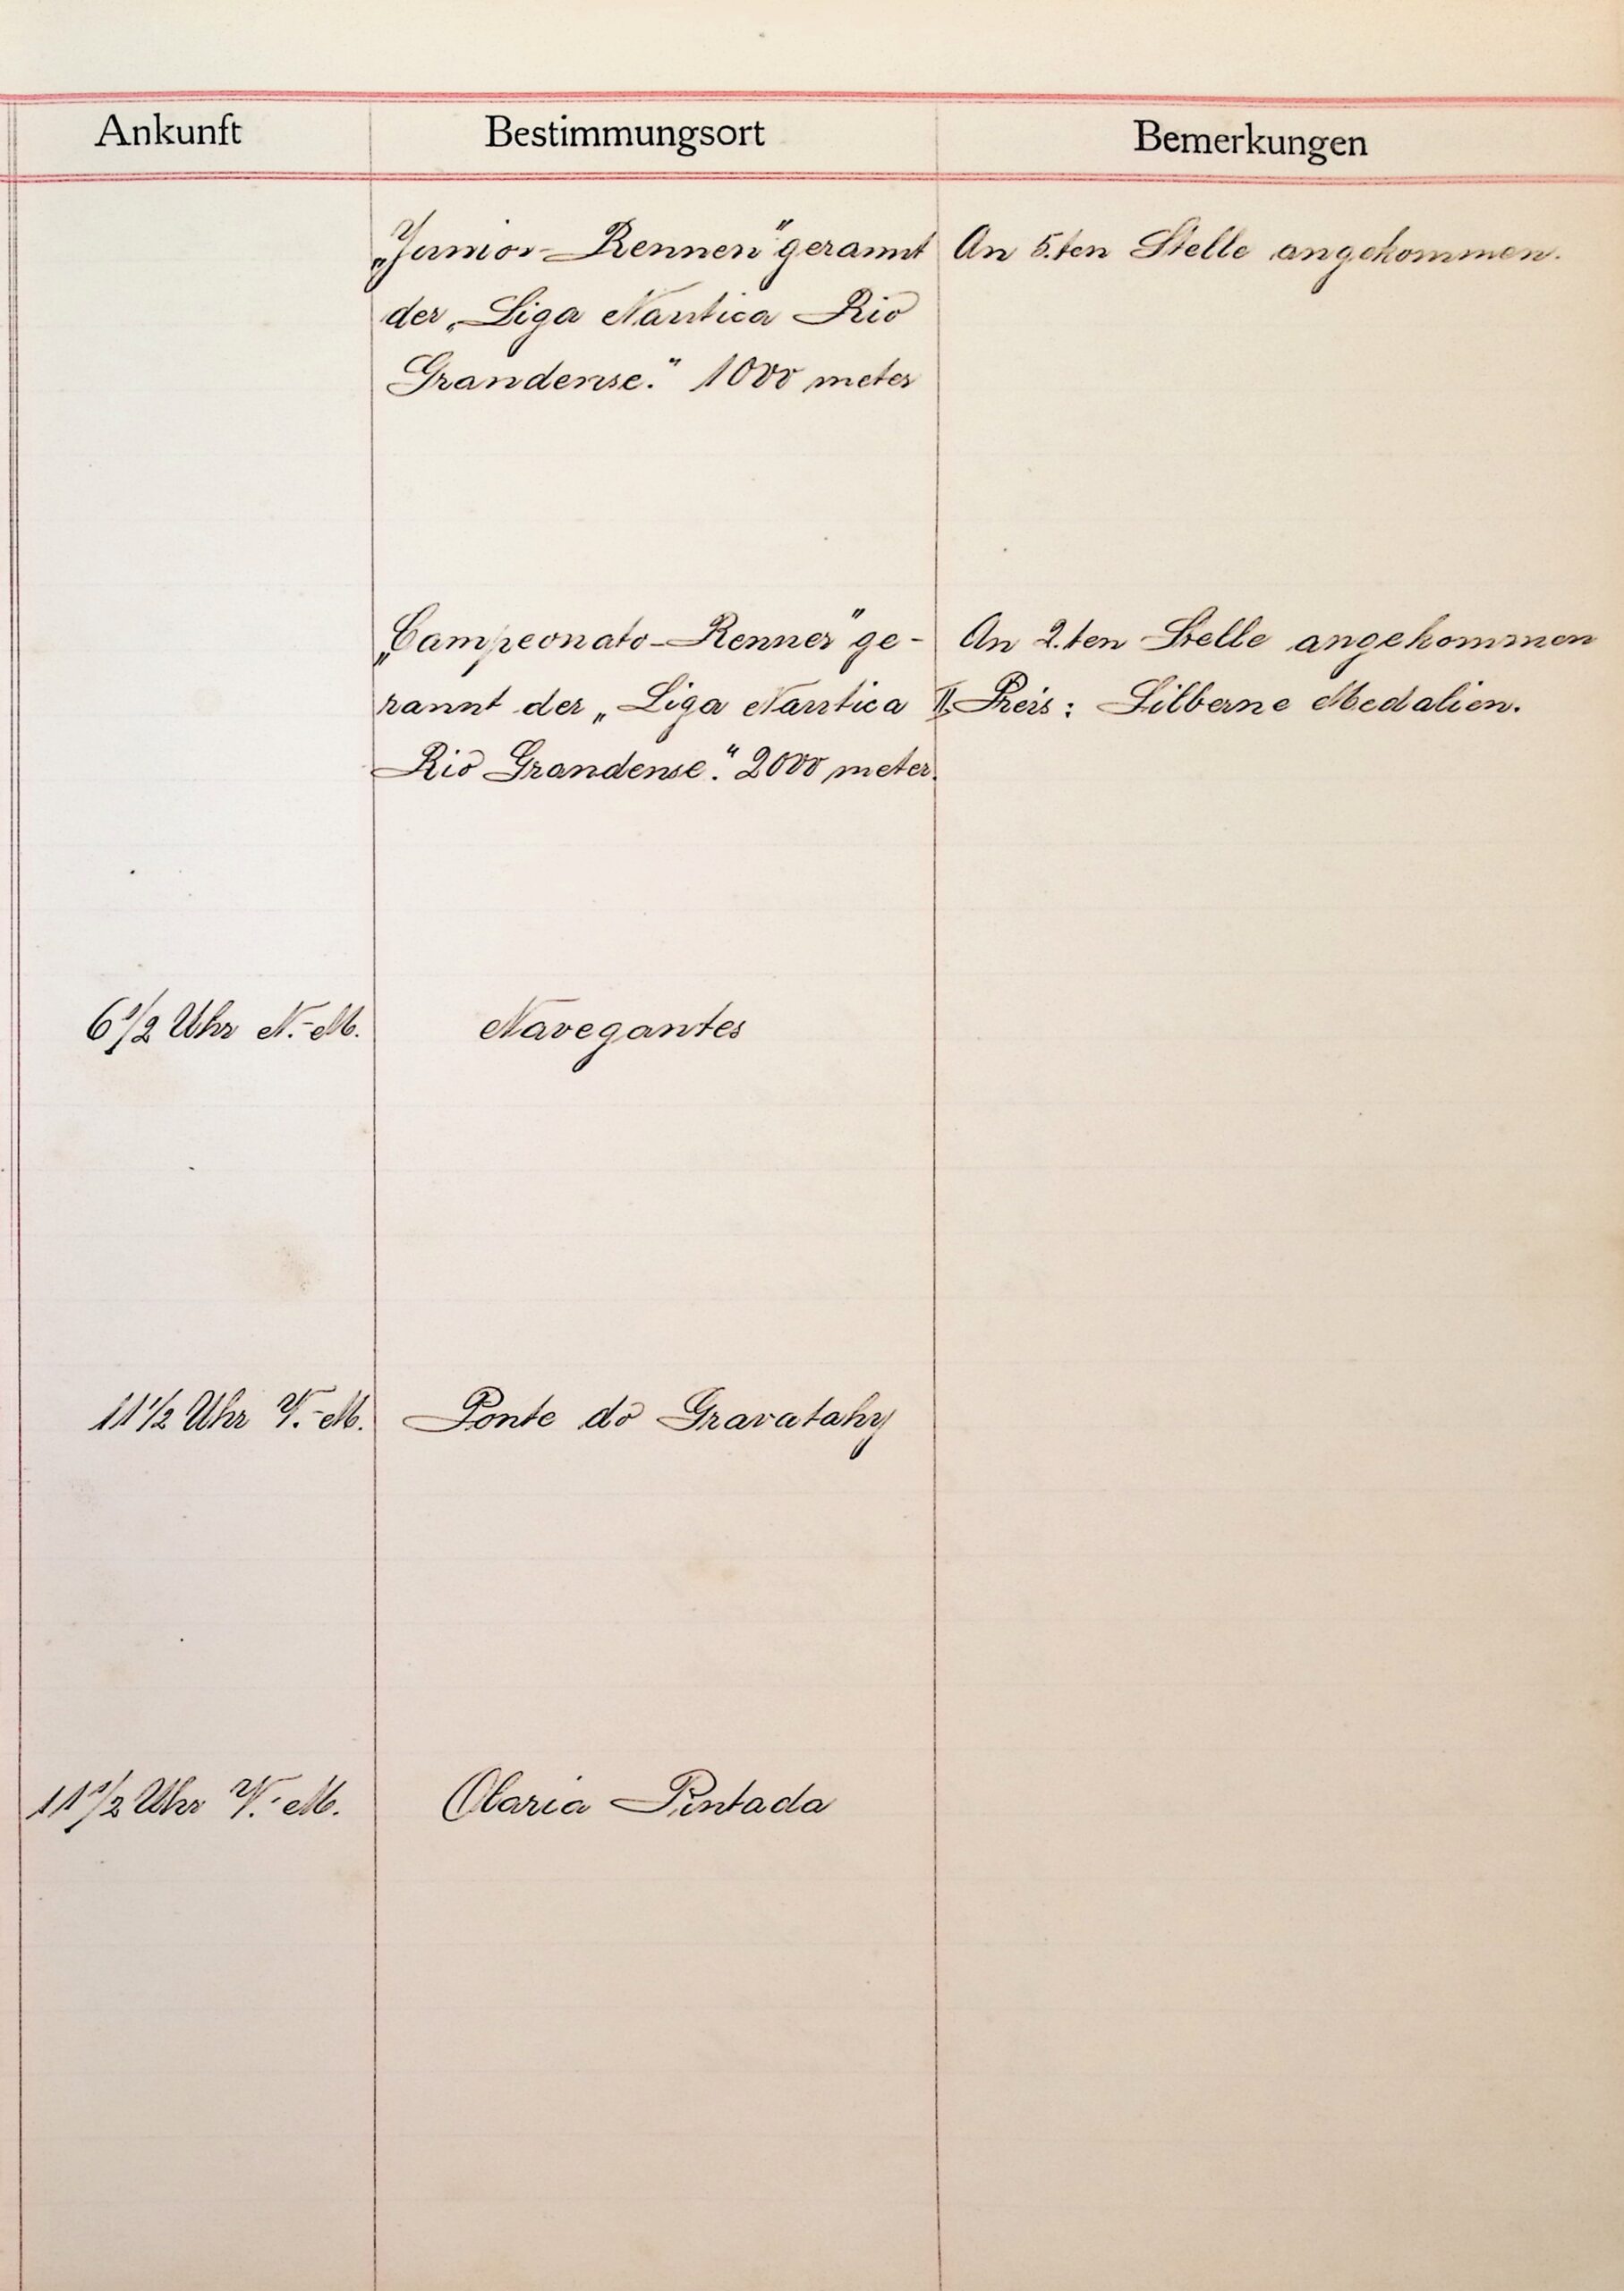 Ankunft Bestimmungsort Bemerkungen
„Junior-Rennen" gerannt An 5.ten Stelle angekommen.
der „Liga Nautica Rio
Grandense." 1000 meter
„Campeonato-Rennen" ge- An 2.ten Stelle angekommen
rannt der „Liga Nautica II. Preis: Silberne Medalien.
Rio Grandense." 2000 meter.
6 1/2 Uhr N.-M. Navegantes
11 1/2 Uhr V.-M. Ponte do Gravatahy
11 1/2 Uhr V.-M. Olaria Pintada